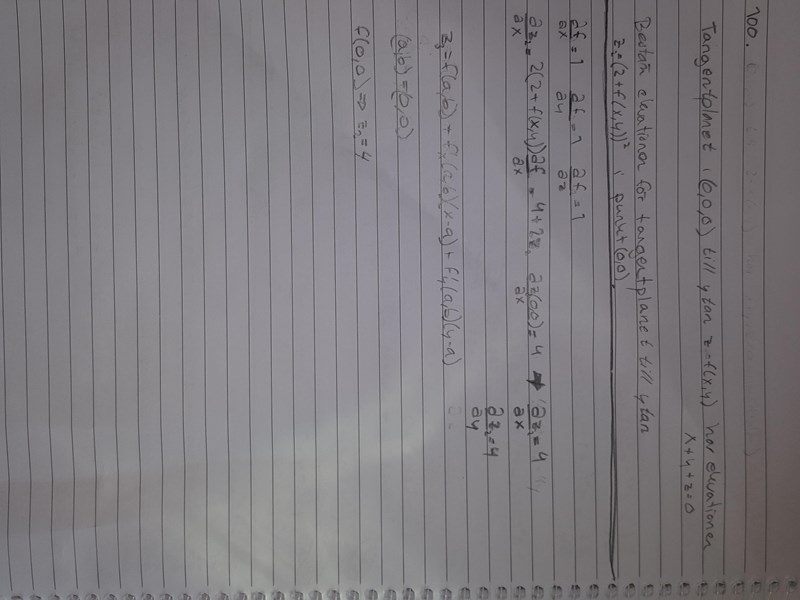 100.
Tangentplanet i (0,0,0) till ytan z=f(x,y) har ekvationen
x+y+z=0
Bestäm ekvationen för tangentplanet till ytan
z₂=(2+f(x,y))² i punkt (0,0).
∂f/∂x = 1 ∂f/∂y = 1 ∂f/∂z = 1
∂z₂/∂x = 2(2+f(x,y))∂f/∂x = 4+2z, ∂z(0,0)/∂x = 4 → ∂z₂/∂x = 4
∂z₂/∂y = 4
z₂=f(a,b)+f'ₓ(a,b)(x-a)+f'ᵧ(a,b)(y-a)
(a,b)=(0,0)
f(0,0) ⇒ z₂=4